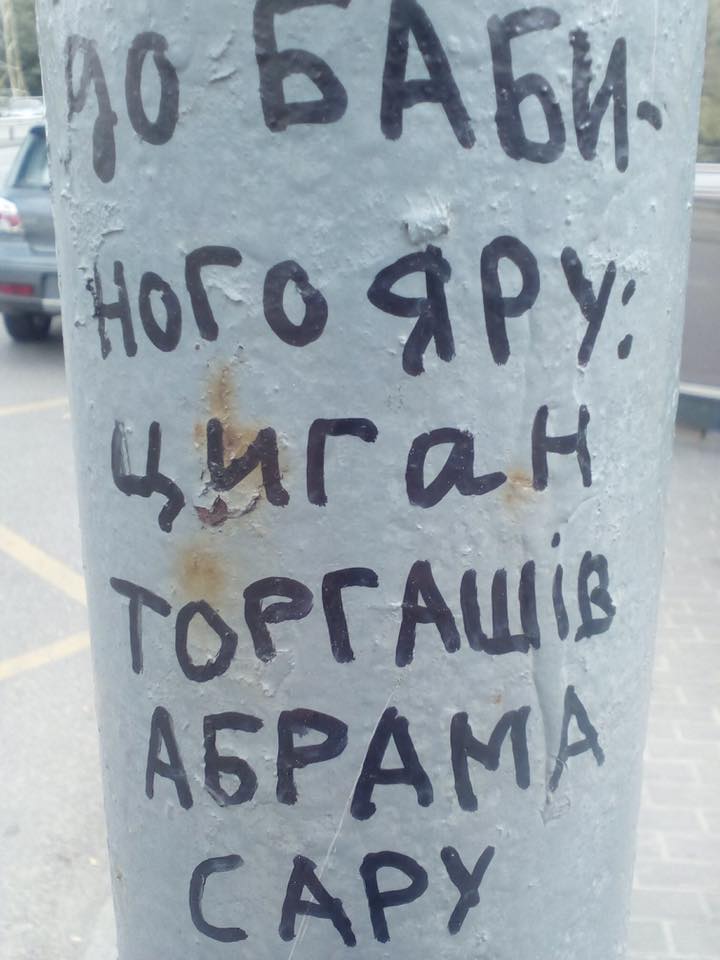 до БАБИ-
НОГО ЯРУ:
циган
ТОРГАШІВ
АБРАМА
САРУ